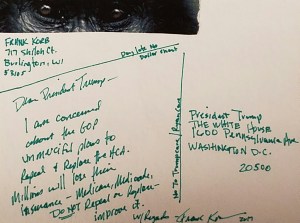 FRANK KORB
717 Shiloh Ct.
Burlington, WI
53105
Day Late No
Dollar Short
Dear President Trump—
I am concerned
about the GOP
unmerciful plans to
Repeal & Replace the ACA.
Millions will lose their
Insurance - Medicare, Medicaid.
DO NOT Repeal or Replace—
improve it.
w/ Regards
Frank Korb 2017
No To Trumpcare / Ryancare
President Trump
THE WHITE HOUSE
1600 PENNSYLVANIA Ave
WASHINGTON D.C.
20500